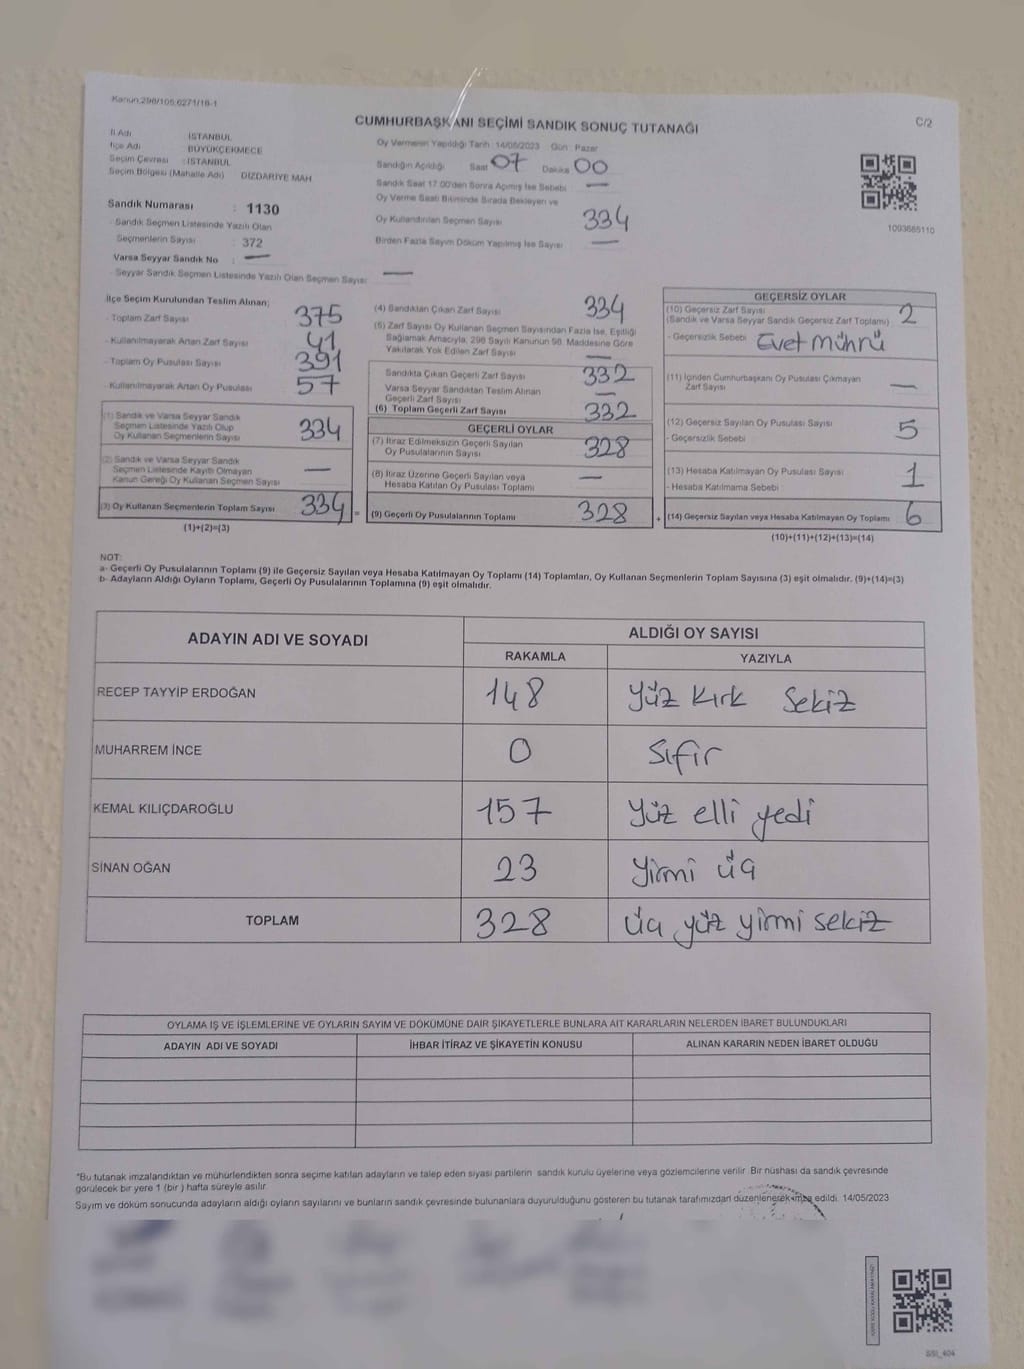 Kanun:298/105,6271/18-1
C/2
CUMHURBAŞKANI SEÇİMİ SANDIK SONUÇ TUTANAĞI
İl Adı : İSTANBUL
İlçe Adı : BÜYÜKÇEKMECE
Seçim Çevresi : İSTANBUL
Seçim Bölgesi (Mahalle Adı) : DİZDARİYE MAH
Sandık Numarası : 1130
- Sandık Seçmen Listesinde Yazılı Olan
Seçmenlerin Sayısı : 372
Varsa Seyyar Sandık No : —
- Seyyar Sandık Seçmen Listesinde Yazılı Olan Seçmen Sayısı : —
Oy Vermenin Yapıldığı Tarih :14/05/2023 Gün : Pazar
Sandığın Açıldığı Saat 07 Dakika 00
Sandık Saat 17.00'den Sonra Açımış İse Sebebi : —
Oy Verme Saati Bitiminde Sırada Bekleyen ve
Oy Kullandırılan Seçmen Sayısı : 334
Birden Fazla Sayım Döküm Yapılmış İse Sayısı : —
1093685110
İlçe Seçim Kurulundan Teslim Alınan;
- Toplam Zarf Sayısı : 375
- Kullanılmayarak Artan Zarf Sayısı : 41
- Toplam Oy Pusulası Sayısı : 391
- Kullanılmayarak Artan Oy Pusulası : 57
(1) Sandık ve Varsa Seyyar Sandık
Seçmen Listesinde Yazılı Olup
Oy Kullanan Seçmenlerin Sayısı : 334
(2) Sandık ve Varsa Seyyar Sandık
Seçmen Listesinde Kayıtlı Olmayan
Kanun Gereği Oy Kullanan Seçmen Sayısı : —
(3) Oy Kullanan Seçmenlerin Toplam Sayısı : 334 =
(1)+(2)=(3)
(4) Sandıktan Çıkan Zarf Sayısı : 334
(5) Zarf Sayısı Oy Kullanan Seçmen Sayısından Fazla İse, Eşitliği
Sağlamak Amacıyla, 298 Sayılı Kanunun 98. Maddesine Göre
Yakılarak Yok Edilen Zarf Sayısı : —
Sandıkta Çıkan Geçerli Zarf Sayısı : 332
Varsa Seyyar Sandıktan Teslim Alınan
Geçerli Zarf Sayısı : —
(6) Toplam Geçerli Zarf Sayısı : 332
GEÇERLİ OYLAR
(7) İtiraz Edilmeksizin Geçerli Sayılan
Oy Pusulalarının Sayısı : 328
(8) İtiraz Üzerine Geçerli Sayılan veya
Hesaba Katılan Oy Pusulası Toplamı : —
(9) Geçerli Oy Pusulalarının Toplamı : 328 +
GEÇERSİZ OYLAR
(10) Geçersiz Zarf Sayısı : 2
(Sandık ve Varsa Seyyar Sandık Geçersiz Zarf Toplamı)
- Geçersizlik Sebebi : Evet Mührü
(11) İçinden Cumhurbaşkanı Oy Pusulası Çıkmayan
Zarf Sayısı : —
(12) Geçersiz Sayılan Oy Pusulası Sayısı : 5
- Geçersizlik Sebebi :
(13) Hesaba Katılmayan Oy Pusulası Sayısı : 1
- Hesaba Katılmama Sebebi :
(14) Geçersiz Sayılan veya Hesaba Katılmayan Oy Toplamı : 6
(10)+(11)+(12)+(13)=(14)
NOT:
a- Geçerli Oy Pusulalarının Toplamı (9) ile Geçersiz Sayılan veya Hesaba Katılmayan Oy Toplamı (14) Toplamları, Oy Kullanan Seçmenlerin Toplam Sayısına (3) eşit olmalıdır. (9)+(14)=(3)
b- Adayların Aldığı Oyların Toplamı, Geçerli Oy Pusulalarının Toplamına (9) eşit olmalıdır.
ADAYIN ADI VE SOYADI ALDIĞI OY SAYISI
RAKAMLA YAZIYLA
RECEP TAYYİP ERDOĞAN 148 Yüz Kırk Sekiz
MUHARREM İNCE 0 Sıfır
KEMAL KILIÇDAROĞLU 157 Yüz elli yedi
SİNAN OĞAN 23 Yirmi üç
TOPLAM 328 üç yüz yirmi sekiz
OYLAMA İŞ VE İŞLEMLERİNE VE OYLARIN SAYIM VE DÖKÜMÜNE DAİR ŞİKAYETLERLE BUNLARA AİT KARARLARIN NELERDEN İBARET BULUNDUKLARI
ADAYIN ADI VE SOYADI İHBAR İTİRAZ VE ŞİKAYETİN KONUSU ALINAN KARARIN NEDEN İBARET OLDUĞU
*Bu tutanak imzalandıktan ve mühürlendikten sonra seçime katılan adayların ve talep eden siyasi partilerin sandık kurulu üyelerine veya gözlemcilerine verilir. Bir nüshası da sandık çevresinde
görülecek bir yere 1 (bir ) hafta süreyle asılır.
Sayım ve döküm sonucunda adayların aldığı oyların sayılarını ve bunların sandık çevresinde bulunanlara duyurulduğunu gösteren bu tutanak tarafımızdan düzenlenerek imza edildi. 14/05/2023
SSI_404